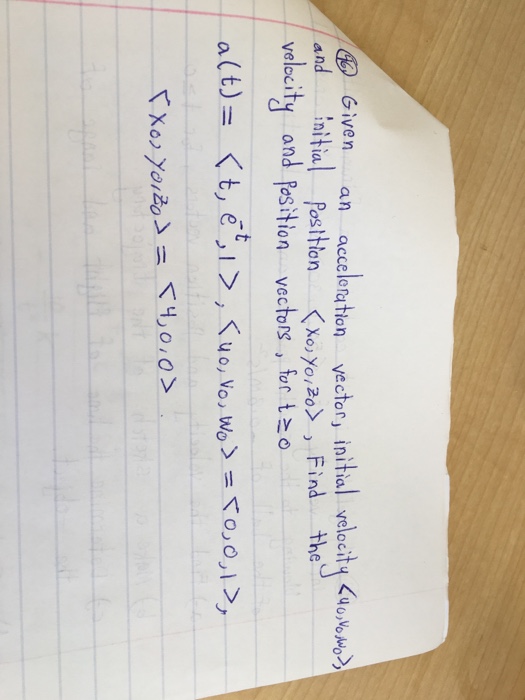 46) Given an acceleration vector, initial velocity <u0,v0,w0>,
and initial position <x0,y0,z0>, Find the
velocity and position vectors, for t≥0
a(t) = <t, e^-t, 1>, <u0, v0, w0> = <0,0,1>,
<x0, y0, z0> = <4,0,0>.